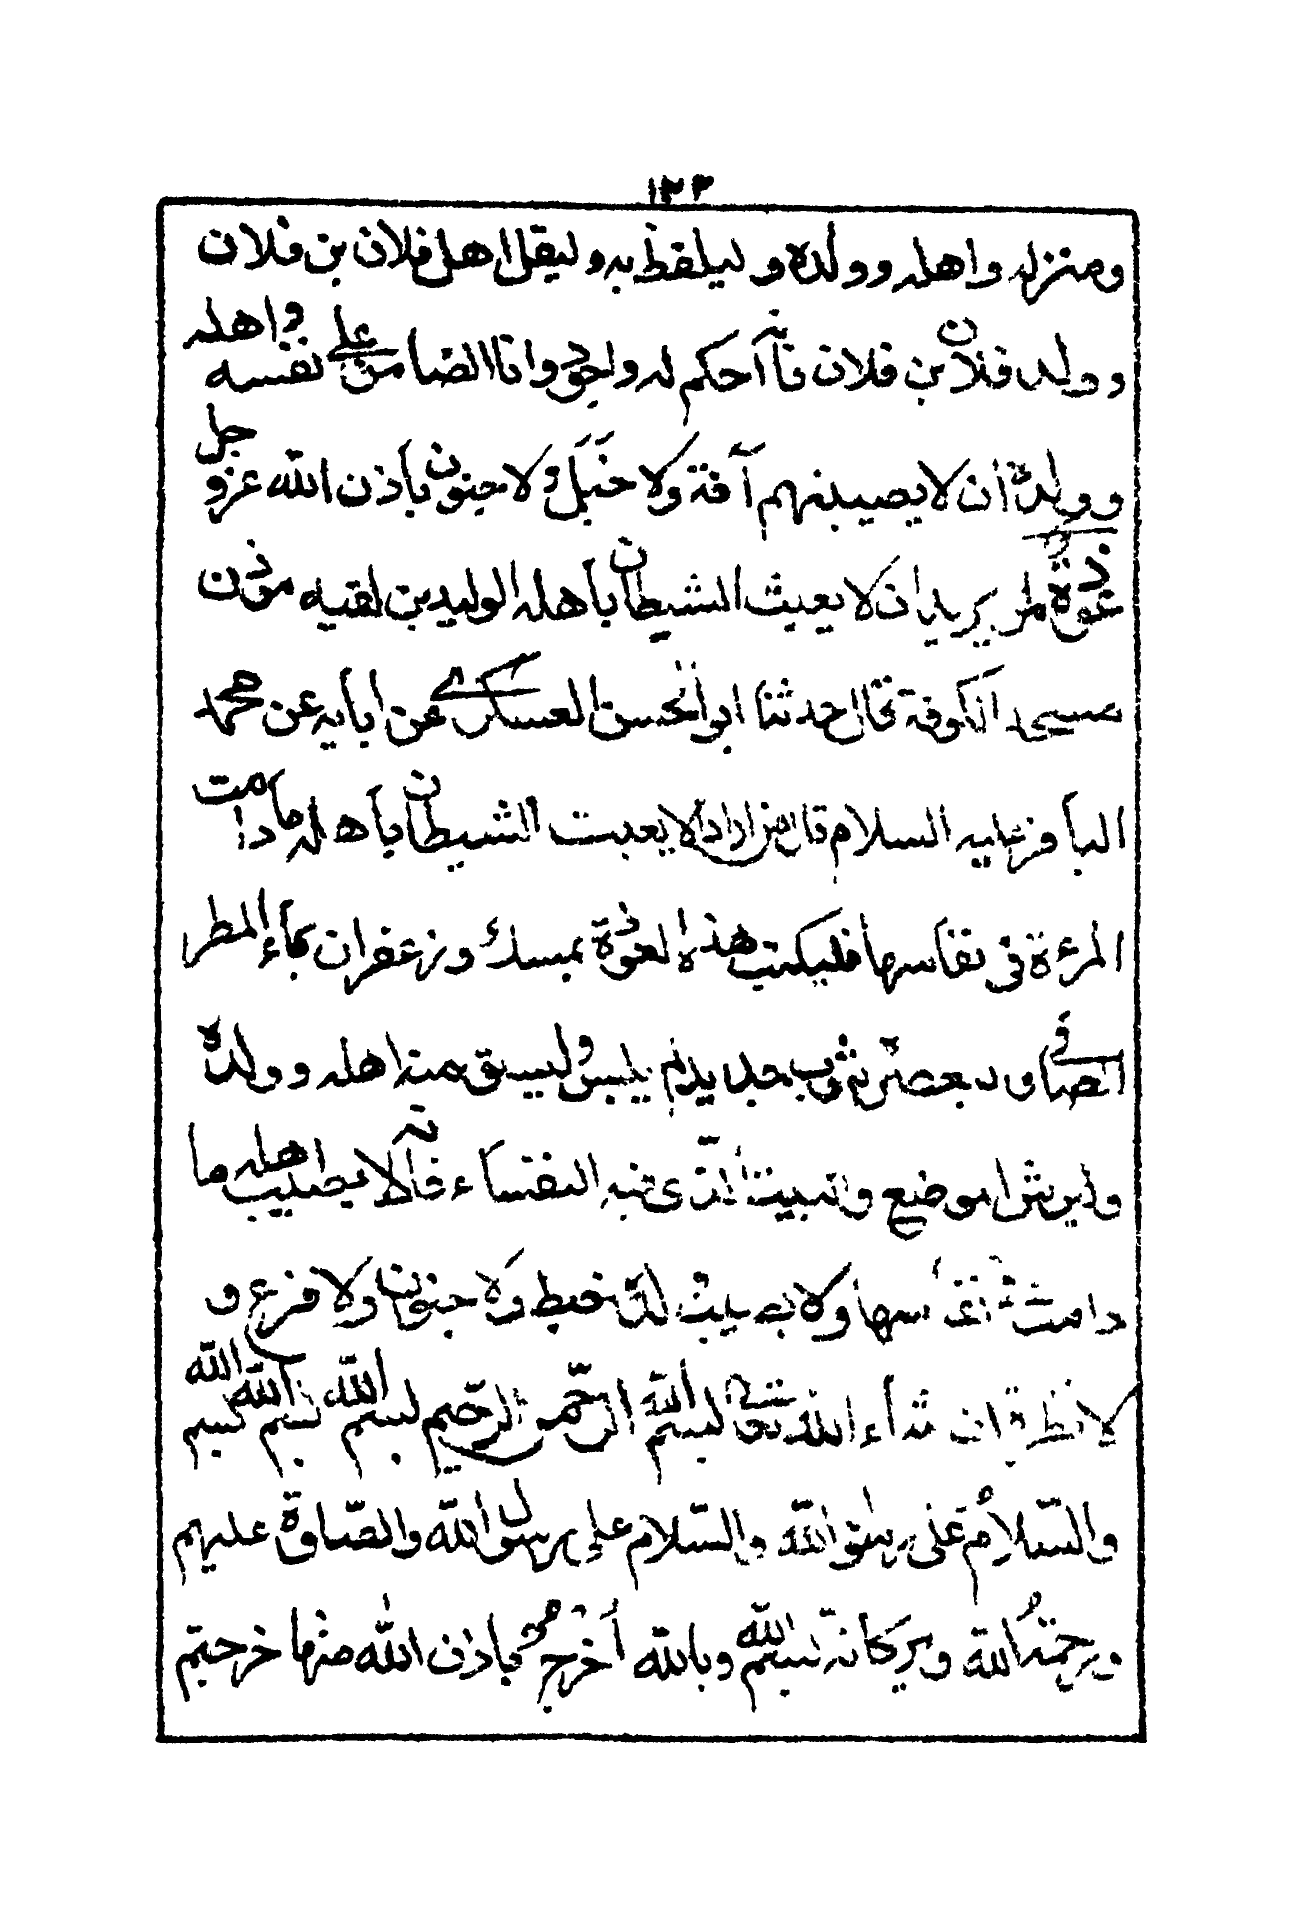 ١٢٣
ومنزله واهله وولده وليلقط به وليقل اهل فلان بن فلان
وولد فلان بن فلان فانه آحكم له واجود وانا الضامن على نفسه واهله
وولده ان لا يصيبنهم آفة ولا خبل ولا جنون باذن الله عز و جل
عوذة من يريد ان لا يعبث الشيطان باهله الوليد بن لقيه موذن
مسجد الكوفة قال حدثنا ابوالحسن العسكرى عن ابايه عن محمد
الباقر عليه السلام قال من اراد الا يعبث الشيطان باهله ما دامت
المرءة في نفاسها فليكتب هذه العوذة بمسك وزعفران بماء المطر
الصافي و يعصره بثوب جديد لم يلبس وليسق منه اهله وولده
وليرش الموضع والبيت الذى فيه النفساء فانه لا يصيب اهله ما
دامت في نفاسها ولا يصيب ولده خبط ولا جنون ولا فزع و
لا نظرة ان شاء الله تعالى بسم الله الرحمن الرحيم بسم الله بسم الله بسم الله
والسلام على رسول الله والسلام على رسول الله والصلوة عليهم
ورحمة الله وبركاته بسم الله وبالله أخرج باذن الله منها خرجتم